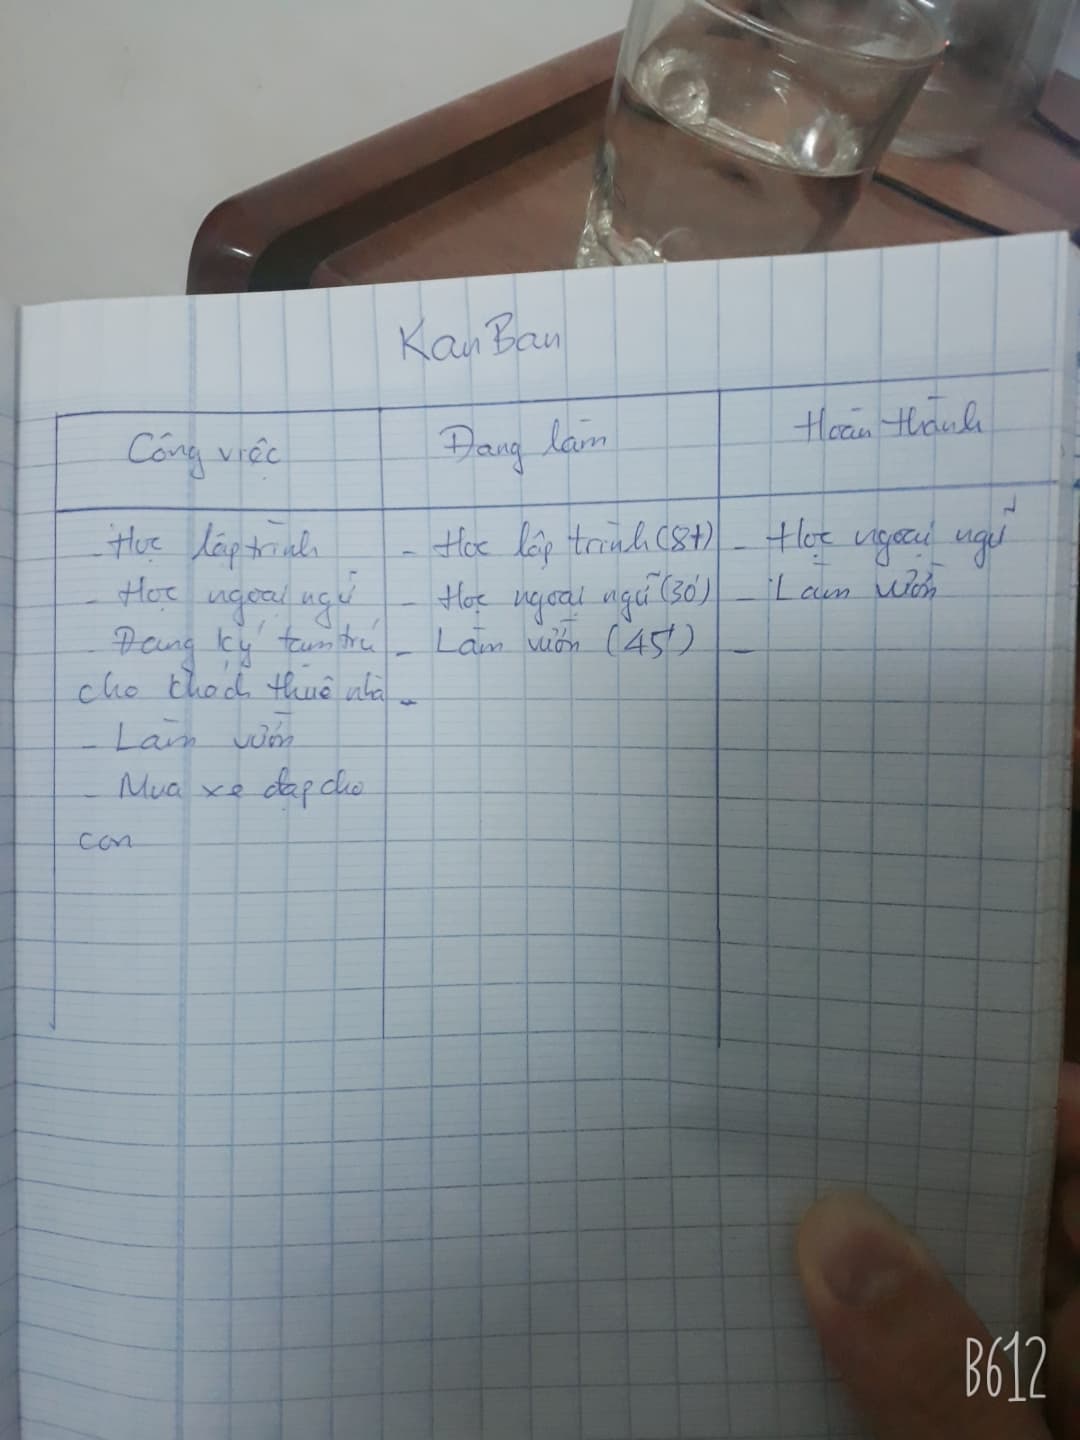 KanBan
Công việc
Đang làm
Hoàn thành
- Học lập trình
- Học ngoại ngữ
- Đăng ký tạm trú
cho khách thuê nhà
- Làm vườn
- Mua xe đạp cho
con
- Học lập trình (8t)
- Học ngoại ngữ (30')
- Làm vườn (45')
-
- Học ngoại ngữ
- Làm vườn
-
B612